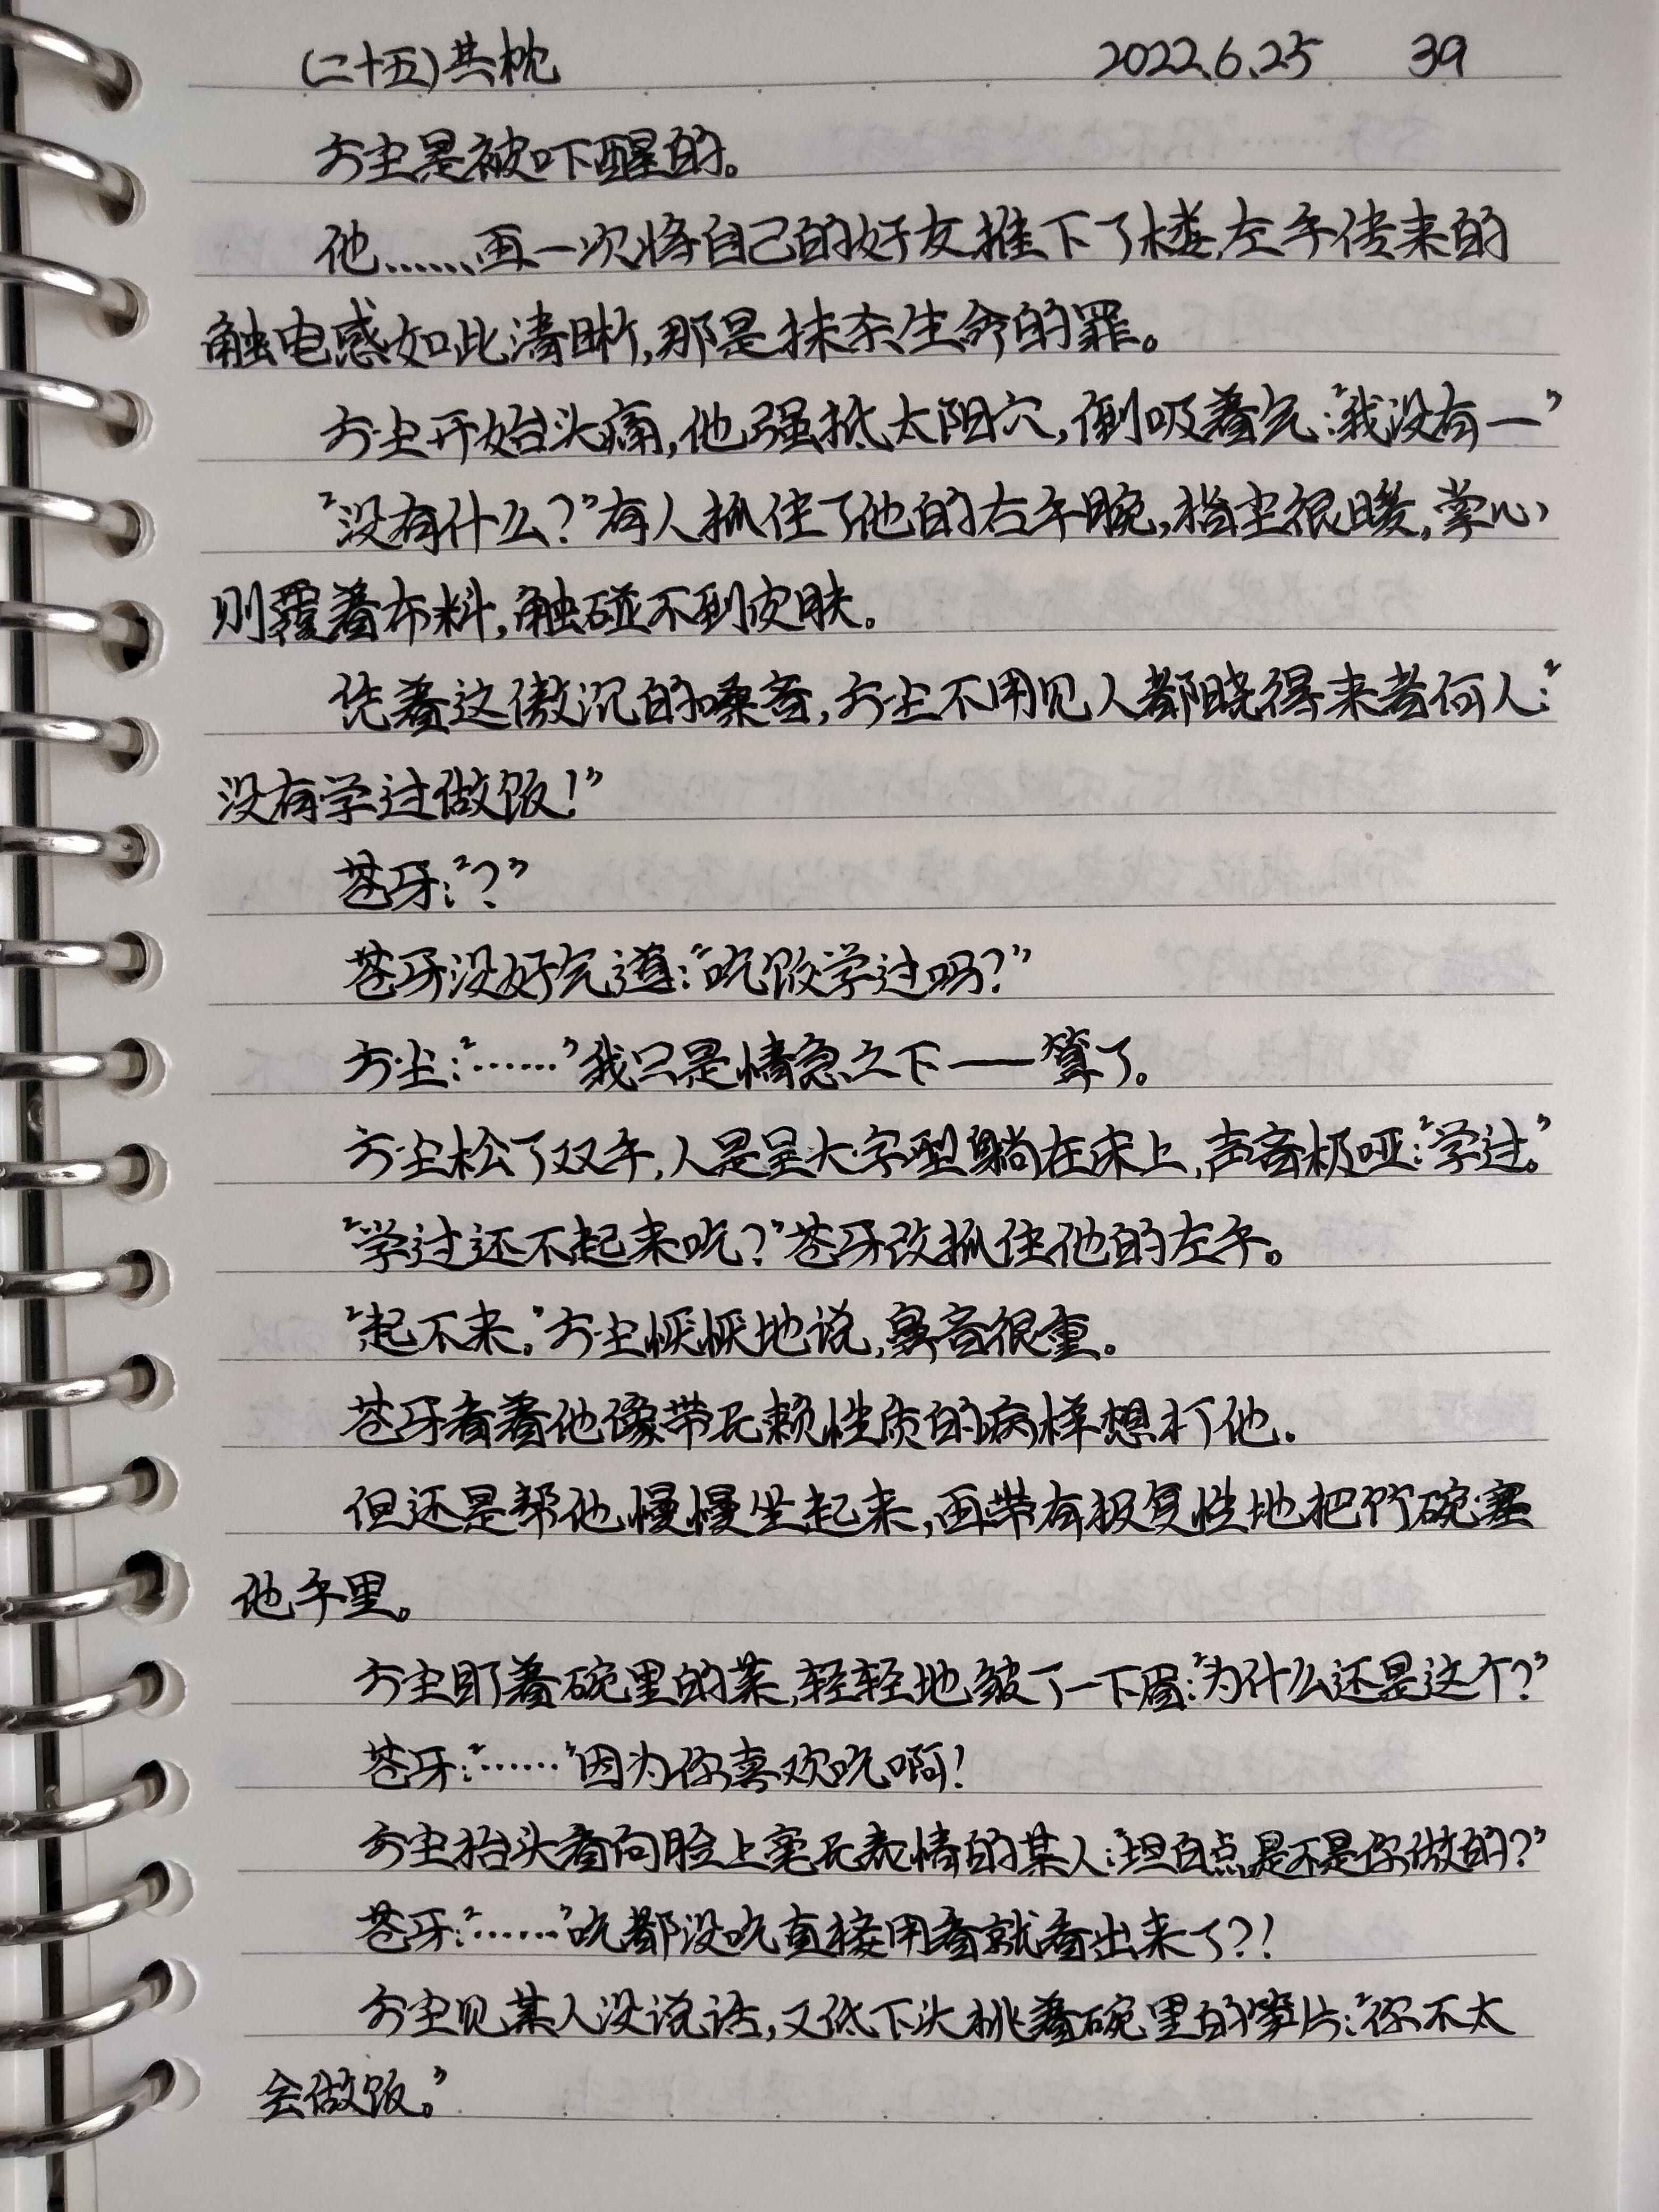 (二十五)共枕 2022.6.25 39
方尘是被吓醒的。
他……再一次将自己的好友推下了楼,左手传来的
触电感如此清晰,那是抹杀生命的罪。
方尘开始头痛,他强抵太阳穴,倒吸着气:“我没有—”
“没有什么?”有人抓住了他的右手腕,指尖很暖,掌心
则覆着布料,触碰不到皮肤。
凭着这傲沉的嗓音,方尘不用见人都晓得来者何人:“
没有学过做饭!”
苍牙:“?”
苍牙没好气道:“吃饭学过吗?”
方尘:“……”我只是情急之下——算了。
方尘松了双手,人是呈大字型躺在床上,声音极哑:“学过。”
“学过还不起来吃?”苍牙改抓住他的左手。
“起不来。”方尘恹恹地说,鼻音很重。
苍牙看着他像带无赖性质的病样想打他.
但还是帮他慢慢坐起来,再带有报复性地把竹碗塞
他手里。
方尘盯着碗里的菜,轻轻地皱了一下眉:“为什么还是这个?”
苍牙:“……”因为你喜欢吃啊!
方尘抬头看向脸上毫无表情的某人:“坦白点,是不是你做的?”
苍牙:“……”吃都没吃直接用看就看出来了?!
方尘见某人没说话,又低下头挑着碗里的笋片:“你不太
会做饭。”